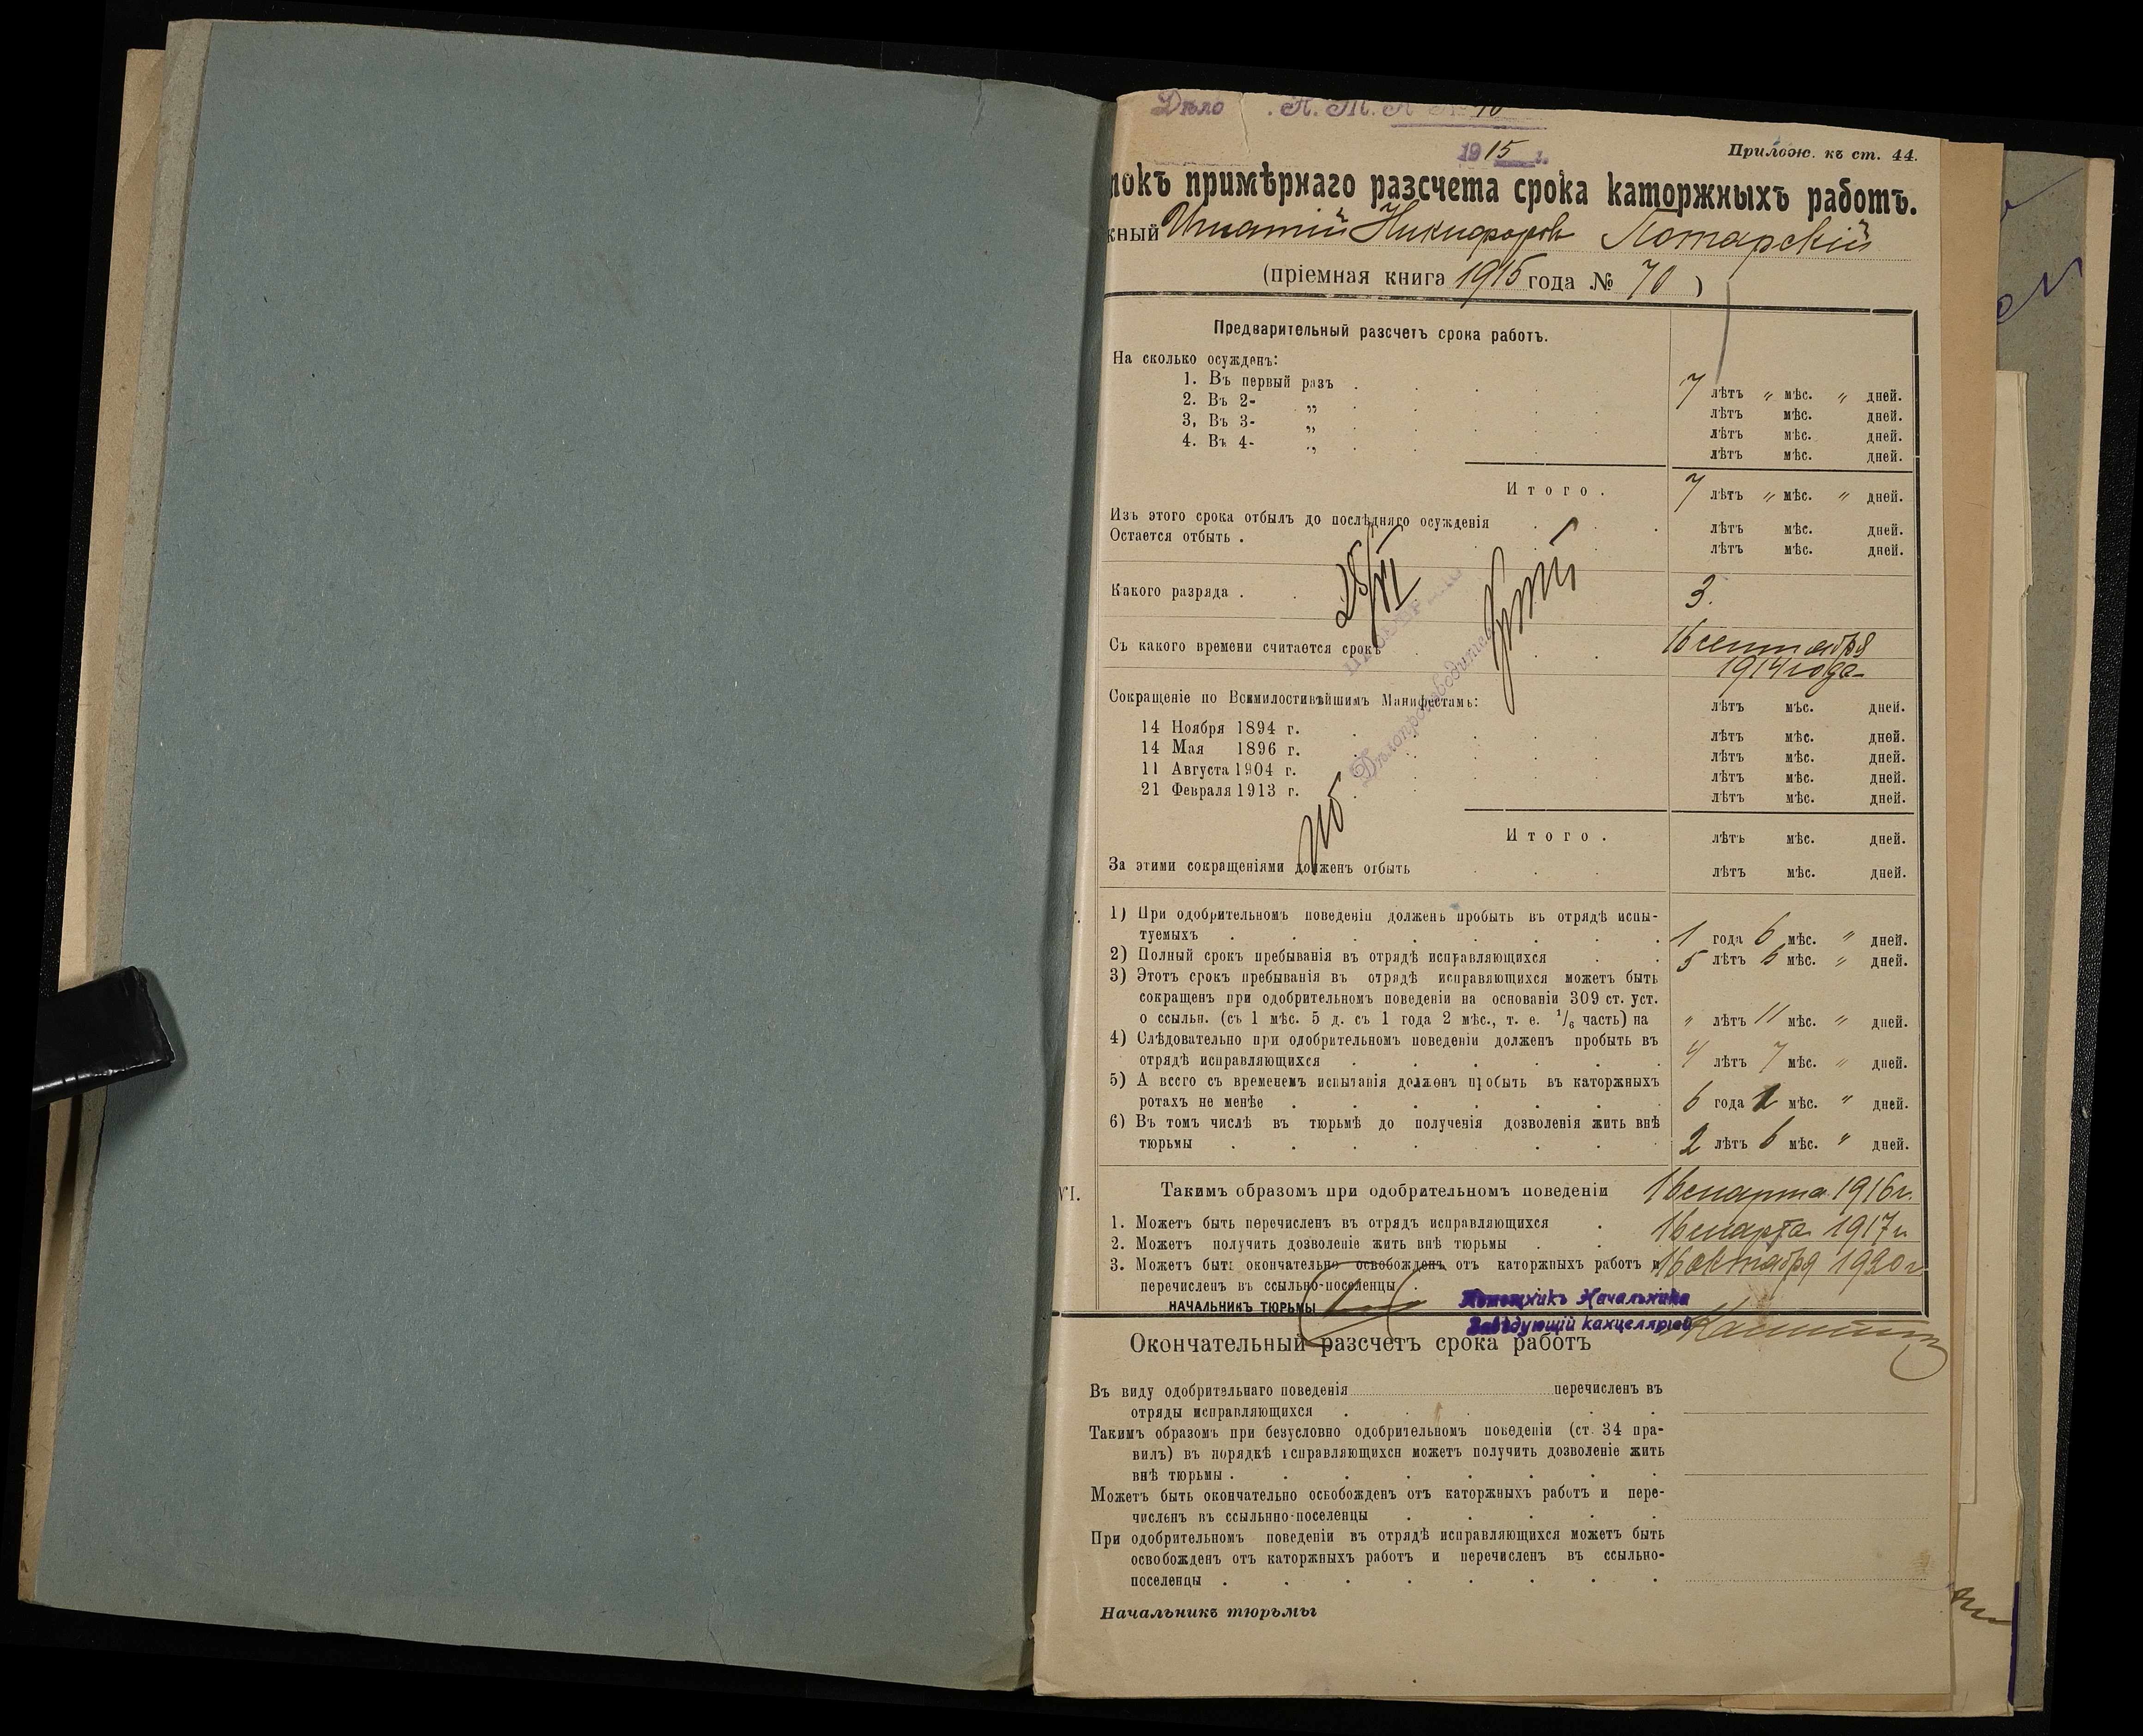 Дѣло . А. Т. К № 70
1915 г.
Прилож. къ ст. 44.
токъ примѣрнаго разсчета срока каторжныхъ работъ.
жный Игнатій Никифоровъ Потарскій
(пріемная книга 1915 года № 70)
Предварительный разсчетъ срока работъ.
На сколько осужденъ:
1. Въ первый разъ . 7 лѣтъ „ мѣс. „ дней.
2. Въ 2- „ лѣтъ мѣс. дней.
3, Въ 3- „ лѣтъ мѣс. дней.
4. Въ 4- „ лѣтъ мѣс. дней.
Итого. 7 лѣтъ „ мѣс. „ дней.
Изъ этого срока отбылъ до послѣдняго осужденія лѣтъ мѣс. дней.
Остается отбыть . лѣтъ мѣс. дней.
28/VI
Какого разряда . 3.
Съ какого времени считается срокъ 16 сентября
1914 года
Дѣлопроизводитель
Сокращеніе по Всемилостивѣйшимъ Манифестамъ: лѣтъ мѣс. дней.
14 Ноября 1894 г. лѣтъ мѣс. дней.
14 Мая 1896 г. лѣтъ мѣс. дней.
11 Августа 1904 г. лѣтъ мѣс. дней.
21 Февраля 1913 г. лѣтъ мѣс. дней.
Итого. лѣтъ мѣс. дней.
За этими сокращеніями долженъ отбыть лѣтъ мѣс. дней.
1) При одобрительномъ поведеніи долженъ пробыть въ отрядѣ испы-
туемыхъ . 1 года 6 мѣс. „ дней.
2) Полный срокъ пребыванія въ отрядѣ исправляющихся 5 лѣтъ 6 мѣс. „ дней.
3) Этотъ срокъ пребыванія въ отрядѣ исправяющихся можетъ быть
сокращенъ при одобрительномъ поведеніи на основаніи 309 ст. уст.
о ссыльн. (съ 1 мѣс. 5 д. съ 1 года 2 мѣс., т. е. 1/6 часть) на „ лѣтъ 11 мѣс. „ дней.
4) Слѣдовательно при одобрительномъ поведеніи долженъ пробыть въ
отрядѣ исправляющихся . 4 лѣтъ 7 мѣс. „ дней.
5) А всего съ временемъ испытанія долженъ пробыть въ каторжныхъ
ротахъ не менѣе . 6 года 1 мѣс. „ дней.
6) Въ томъ числѣ въ тюрьмѣ до полученія дозволенія жить внѣ
тюрьмы . 2 лѣтъ 6 мѣс. „ дней.
VI. Такимъ образомъ при одобрительномъ поведеніи 16 марта 1916 г.
1. Можетъ быть перечисленъ въ отрядъ исправляющихся . 16 марта 1917 г
2. Можетъ получить дозволеніе жить внѣ тюрьмы . 16 октября 1920 г
3. Можетъ быть окончательно освобожденъ отъ каторжныхъ работъ и
перечисленъ въ ссыльно-поселенцы .
НАЧАЛЬНИКЪ ТЮРЬМЫ
Помощникъ Начальника
Завѣдующій канцеляріей
Окончательный разсчетъ срока работъ
Въ виду одобрительнаго поведенія перечисленъ въ
отряды исправляющихся .
Такимъ образомъ при безусловно одобрительномъ поведеніи (ст. 34 пра-
вилъ) въ порядкѣ исправляющихся можетъ получить дозволеніе жить
внѣ тюрьмы .
Можетъ быть окончательно освобожденъ отъ каторжныхъ работъ и пере-
численъ въ ссыльнно-поселенцы .
При одобрительномъ поведеніи въ отрядѣ исправляющихся можетъ быть
освобожденъ отъ каторжныхъ работъ и перечисленъ въ ссыльно-
поселенцы .
Начальникъ тюрьмы